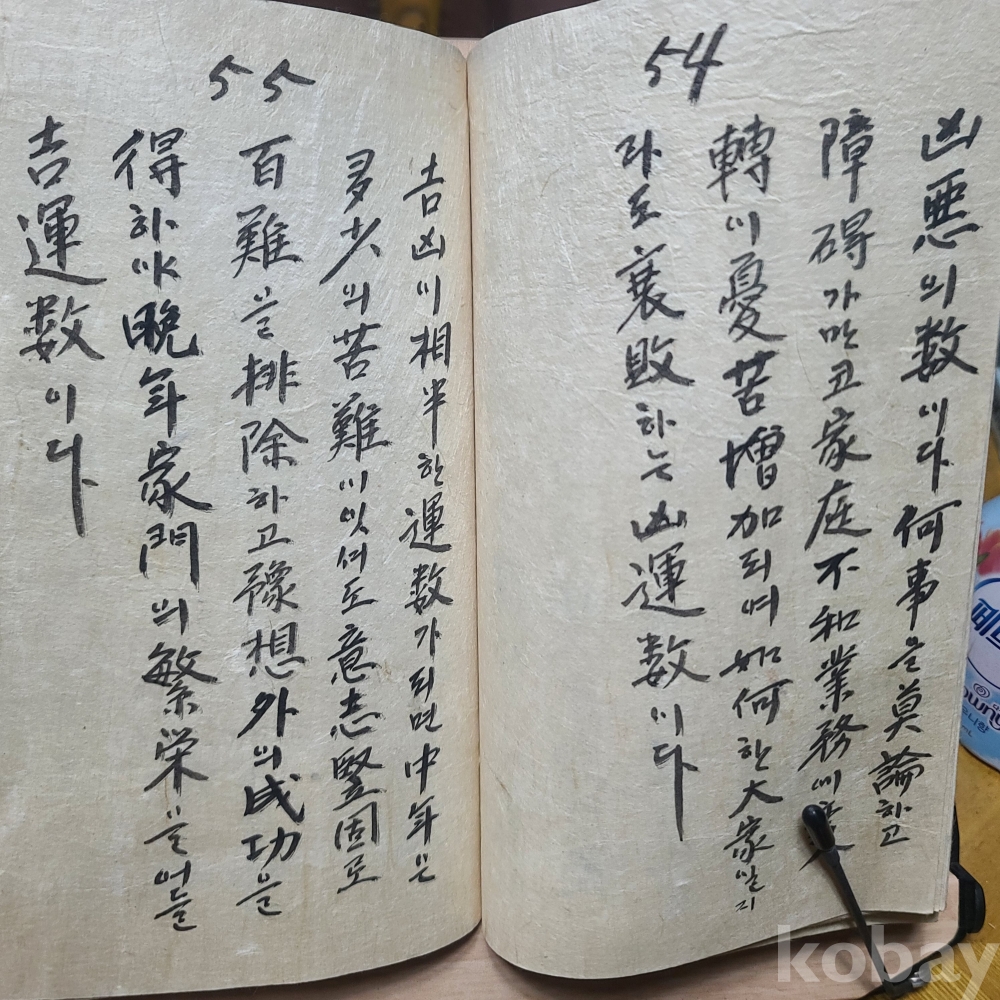 54
凶悪의 数이다 何事을 莫論하고
障碍가만고 家庭不和業務에
轉이 憂苦增加되며 如何한 大家일지
라도 衰敗하는 凶運数이다
55
吉凶이 相半한 運数가되면 中年은
多少의 苦難이잇서도 意志堅固로
百難을 排除하고 豫想外의 成功을
得하야 晩年家門의 繁栄을 어들
吉運数이다
kobay